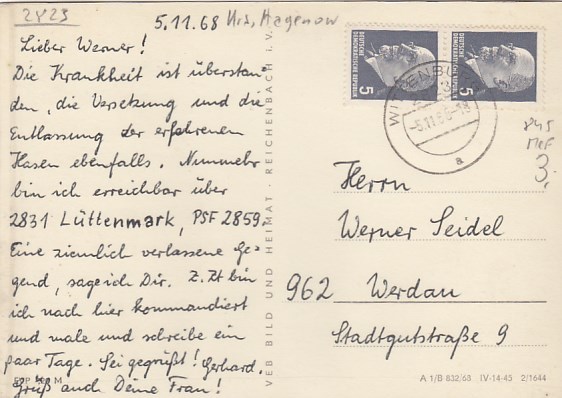 2823
5.11.68 Krs. Hagenow
Lieber Werner!
Die Krankheit ist überstan-
den, die Versetzung und die
Entlassung der erfahrenen
Hasen ebenfalls. Nunmehr
bin ich erreichbar über
2831 Lüttenmark, PSF 2859.
Eine ziemlich verlassene Ge-
gend, sage ich Dir. Z. Zt bin
ich nach hier kommandiert
und male und schreibe ein
paar Tage. Sei gegrüßt! Gerhard.
Gruß auch Deine Frau!
VEB BILD UND HEIMAT · REICHENBACH i. V.
DEUTSCHE
DEMOKRATISCHE REPUBLIK
5
DEUTSCHE
DEMOKRATISCHE REPUBLIK
5
-5.11.68-18
a
845
MeF
3,-
Herrn
Werner Seidel
962 Werdau
Stadtgutstraße 9
A 1/B 832/63 IV-14-45 2/1644